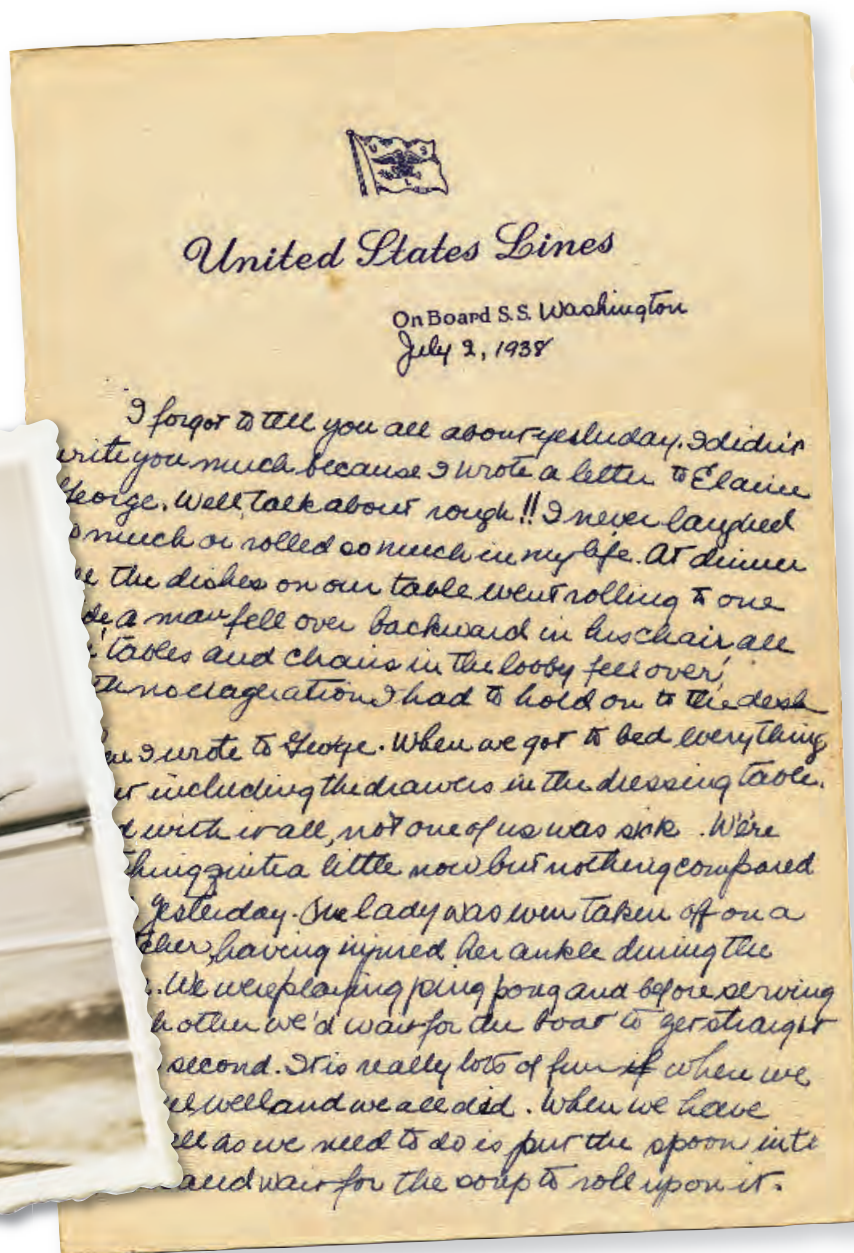 U S
L
United States Lines
On Board S.S. Washington
July 2, 1938
I forgot to tell you all about yesterday. I didn't
write you much because I wrote a letter to Elaine
George. Well, talk about rough!! I never laughed
much or rolled so much in my life. At dinner
the dishes on our table went rolling to one
a man fell over backward in his chair all
tables and chairs in the lobby fell over!
no exageration I had to hold on to the desk
I wrote to George. When we got to bed everything
including the drawers in the dressing table.
with it all, not one of us was sick. We're
quite a little now but nothing compared
yesterday. One lady was even taken off on a
having injured her ankle during the
We were playing ping pong and before serving
other we'd wait for the boat to get straight
second. It is really lots of fun if when we
well and we all did. When we have
all as we need to do is put the spoon into
and wait for the soup to roll upon it.